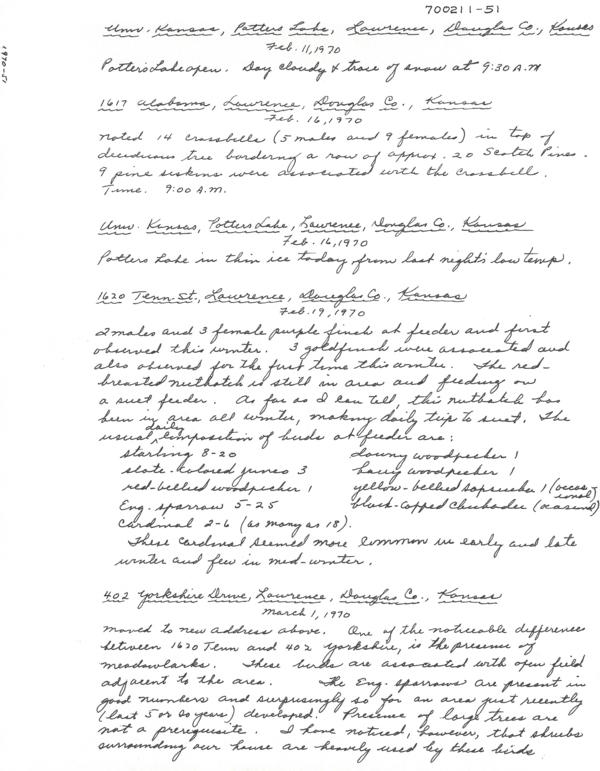 700211-51
1970-51
Univ. Kansas, Potters Lake, Lawrence, Douglas Co., Kansas
Feb. 11, 1970
Potters Lake open. Day cloudy & trace of snow at 9:30 A.M
1617 Alabama, Lawrence, Douglas Co., Kansas
Feb. 16, 1970
noted 14 crossbills (5 males and 9 females) in top of
deciduous tree bordering a row of approx. 20 Scotch Pines.
9 pine siskins were associated with the crossbill.
Time. 9:00 A.M.
Univ. Kansas, Potters Lake, Lawrence, Douglas Co., Kansas
Feb. 16, 1970
Potters Lake in thin ice today from last night's low temp.
1620 Tenn St., Lawrence, Douglas Co., Kansas
Feb. 19, 1970
2 males and 3 female purple finch at feeder and first
observed this winter. 3 goldfinch were associated and
also observed for the first time this winter. The red-
breasted nuthatch is still in area and feeding on
a suet feeder. As far as I can tell, this nuthatch has
been in area all winter, making daily trip to suet. The
usual daily composition of birds at feeder are:
starling 8-20 downy woodpecker 1
slate-colored junco 3 hairy woodpecker 1
red-bellied woodpecker 1 yellow-bellied sapsucker 1 (occas-
ional)
Eng. sparrow 5-25 black-capped chickadee (occasional)
Cardinal 2-6 (as many as 18).
These cardinal seemed more common in early and late
winter and few in mid-winter.
402 Yorkshire Drive, Lawrence, Douglas Co., Kansas
March 1, 1970
moved to new address above. One of the noticeable difference
between 1620 Tenn and 402 Yorkshire, is the presence of
meadowlarks. These birds are associated with open field
adjacent to the area. The Eng. sparrows are present in
good numbers and surprisingly so for an area just recently
(last 5 or so years) developed. Presence of large trees are
not a prerequisite. I have noticed, however, that shrubs
surrounding our house are heavily used by these birds